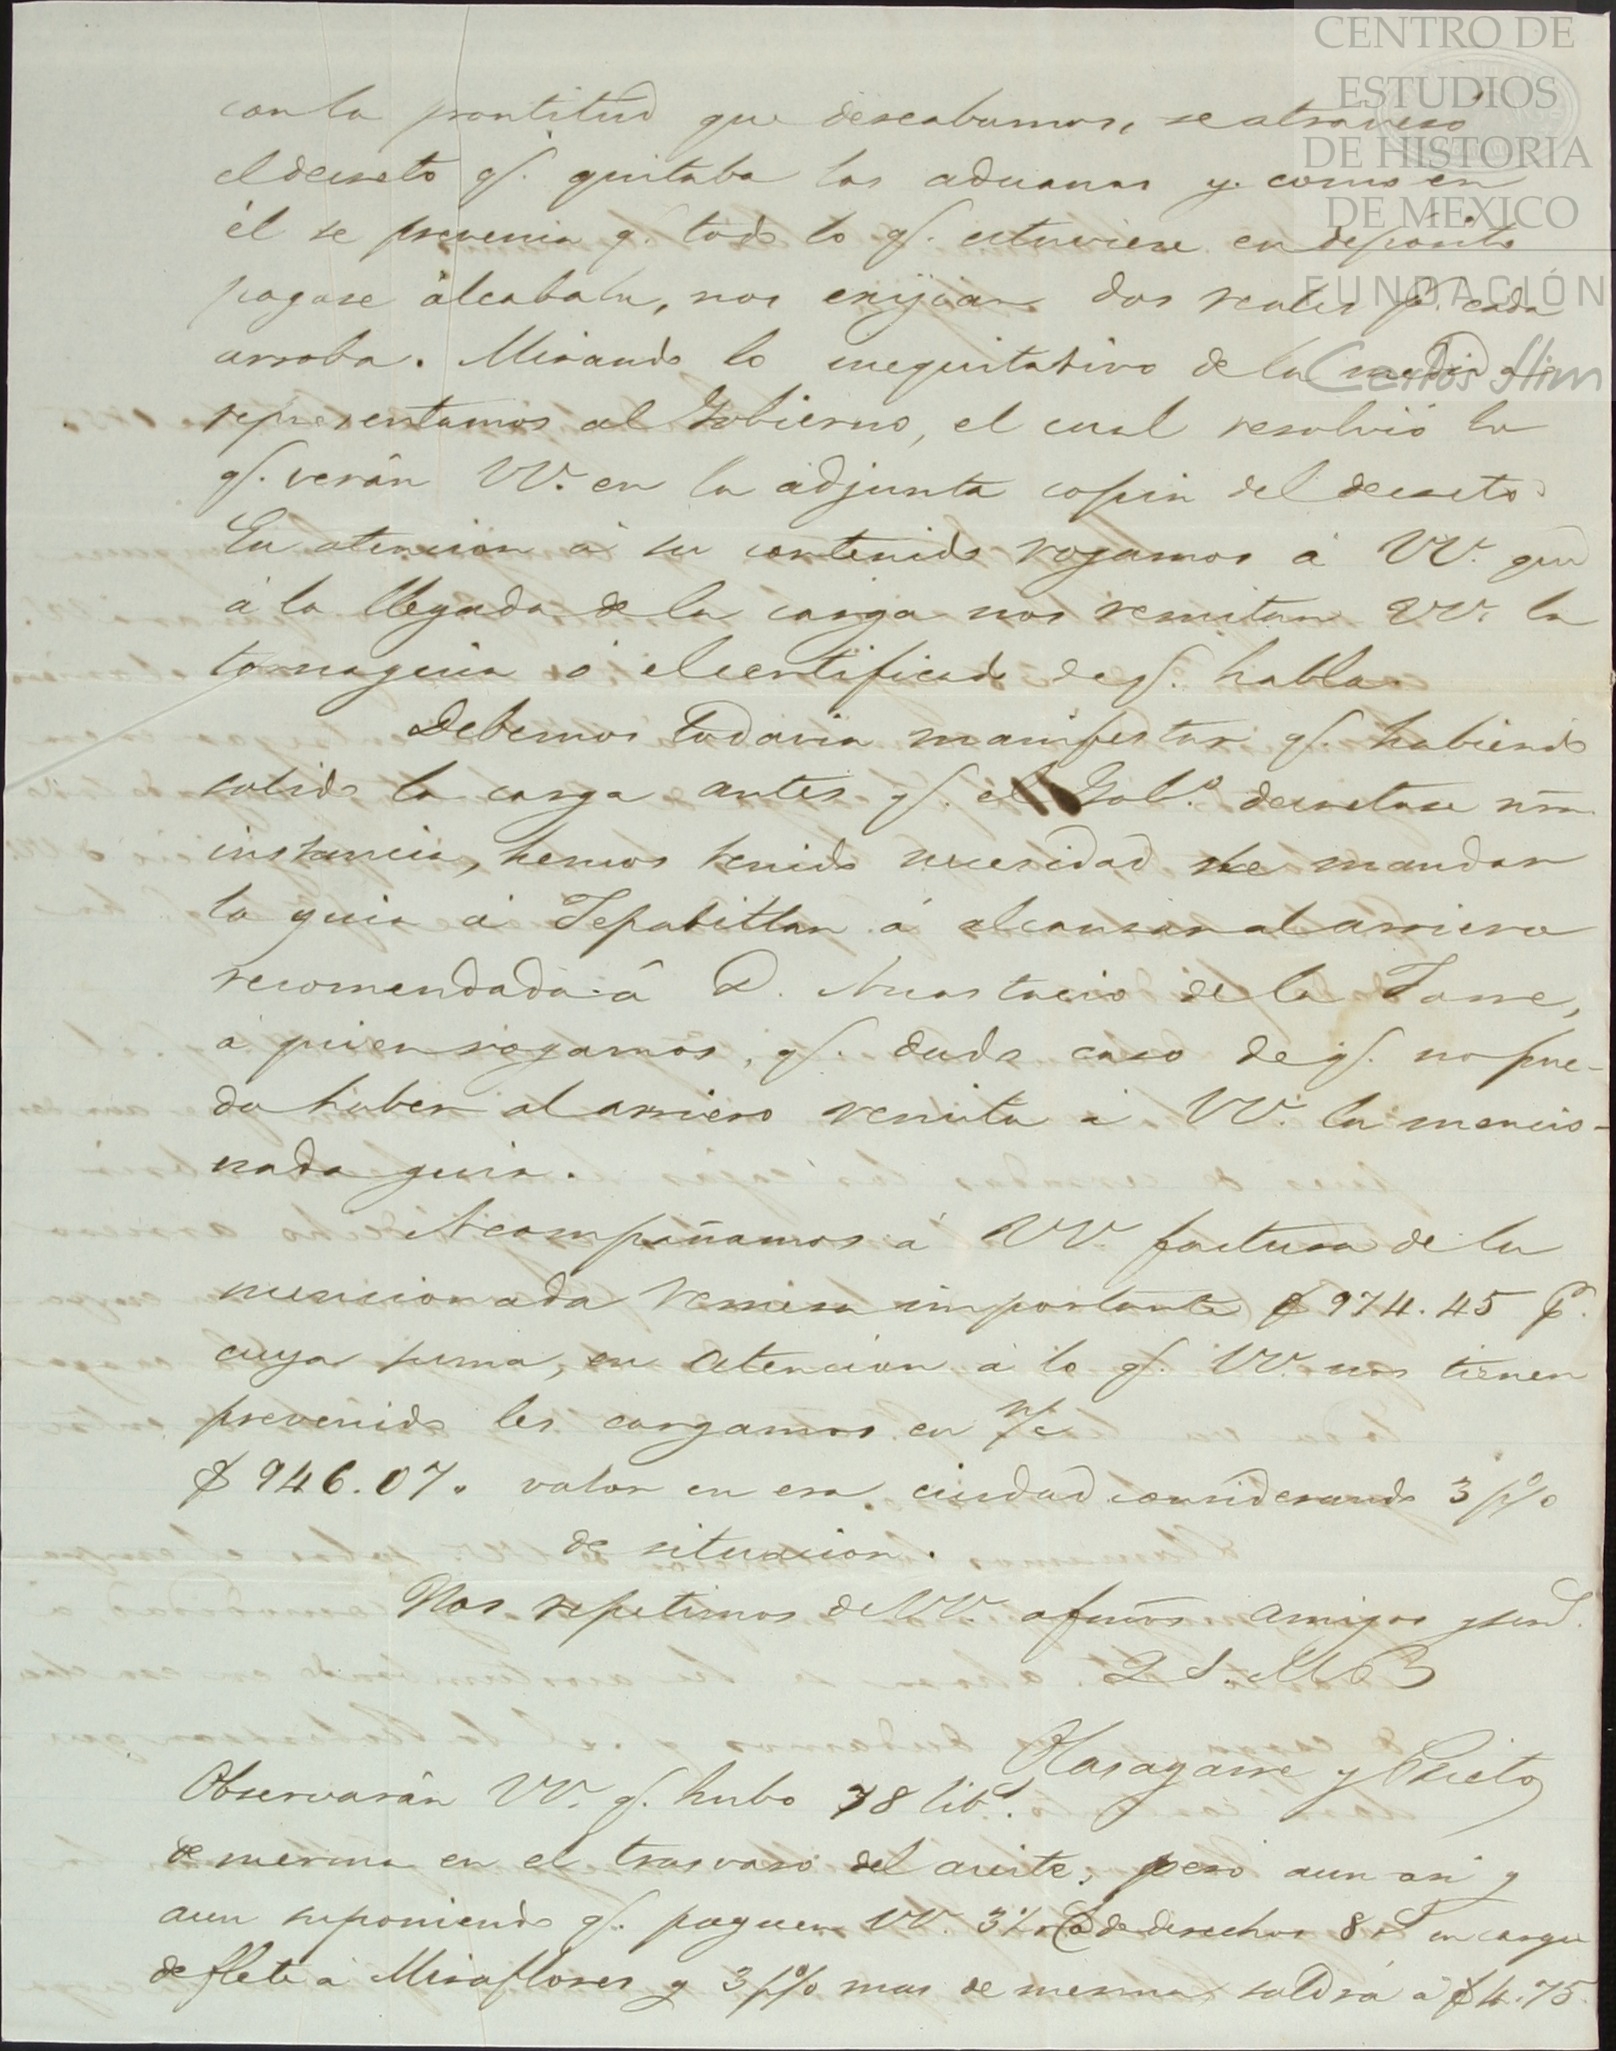 CENTRO DE
ESTUDIOS
DE HISTORIA
DE MEXICO
FUNDACIÓN
Carlos Slim
con la prontitud que deseabamos, se atravesó
el decreto q. quitaba las aduanas y como en
él se prevenia q. todo lo q. estuviese en deposito
pagase alcabala, nos exijian dos reales p. cada
arroba. Mirando lo inequitativo de la medida
representamos al Gobierno, el cual resolvió lo
q. verán VV. en la adjunta copia del decreto.
En atencion á su contenido rogamos á VV. que
á la llegada de la carga nos remitan VV. la
tornaguia ó el certificado de q. habla.
Debemos todavia manifestar q. habiendo
salido la carga antes q. el Gob.º decretase nra.
instancia, hemos tenido necesidad de mandar
la guia á Tepatitlan á alcanzar al arriero
recomendada á D. Anastacio de la Torre,
á quien rogamos, q. dado caso de q. no pue-
da haber al arriero remita á VV. la mencio-
nada guia.
Acompañamos á VV. factura de la
mencionada remesa importante $ 974.45 c.
cuya suma, en atencion á lo q. VV. nos tienen
prevenido les cargamos en n/c
$ 946.07. valor en esa ciudad considerando 3 p%
de situacion.
Nos repetimos de VV. afmos amigos y ser.
Q S. M B
Olasagarre y Prieto
Observarán VV. q. hubo 78 lib.
de merma en el trasvaso del aceite, pero aun asi y
aun suponiendo q. paguen VV. 3% de derechos 8 en carga
de flete á Miraflores y 3 p% mas de merma saldrá á $ 4.75